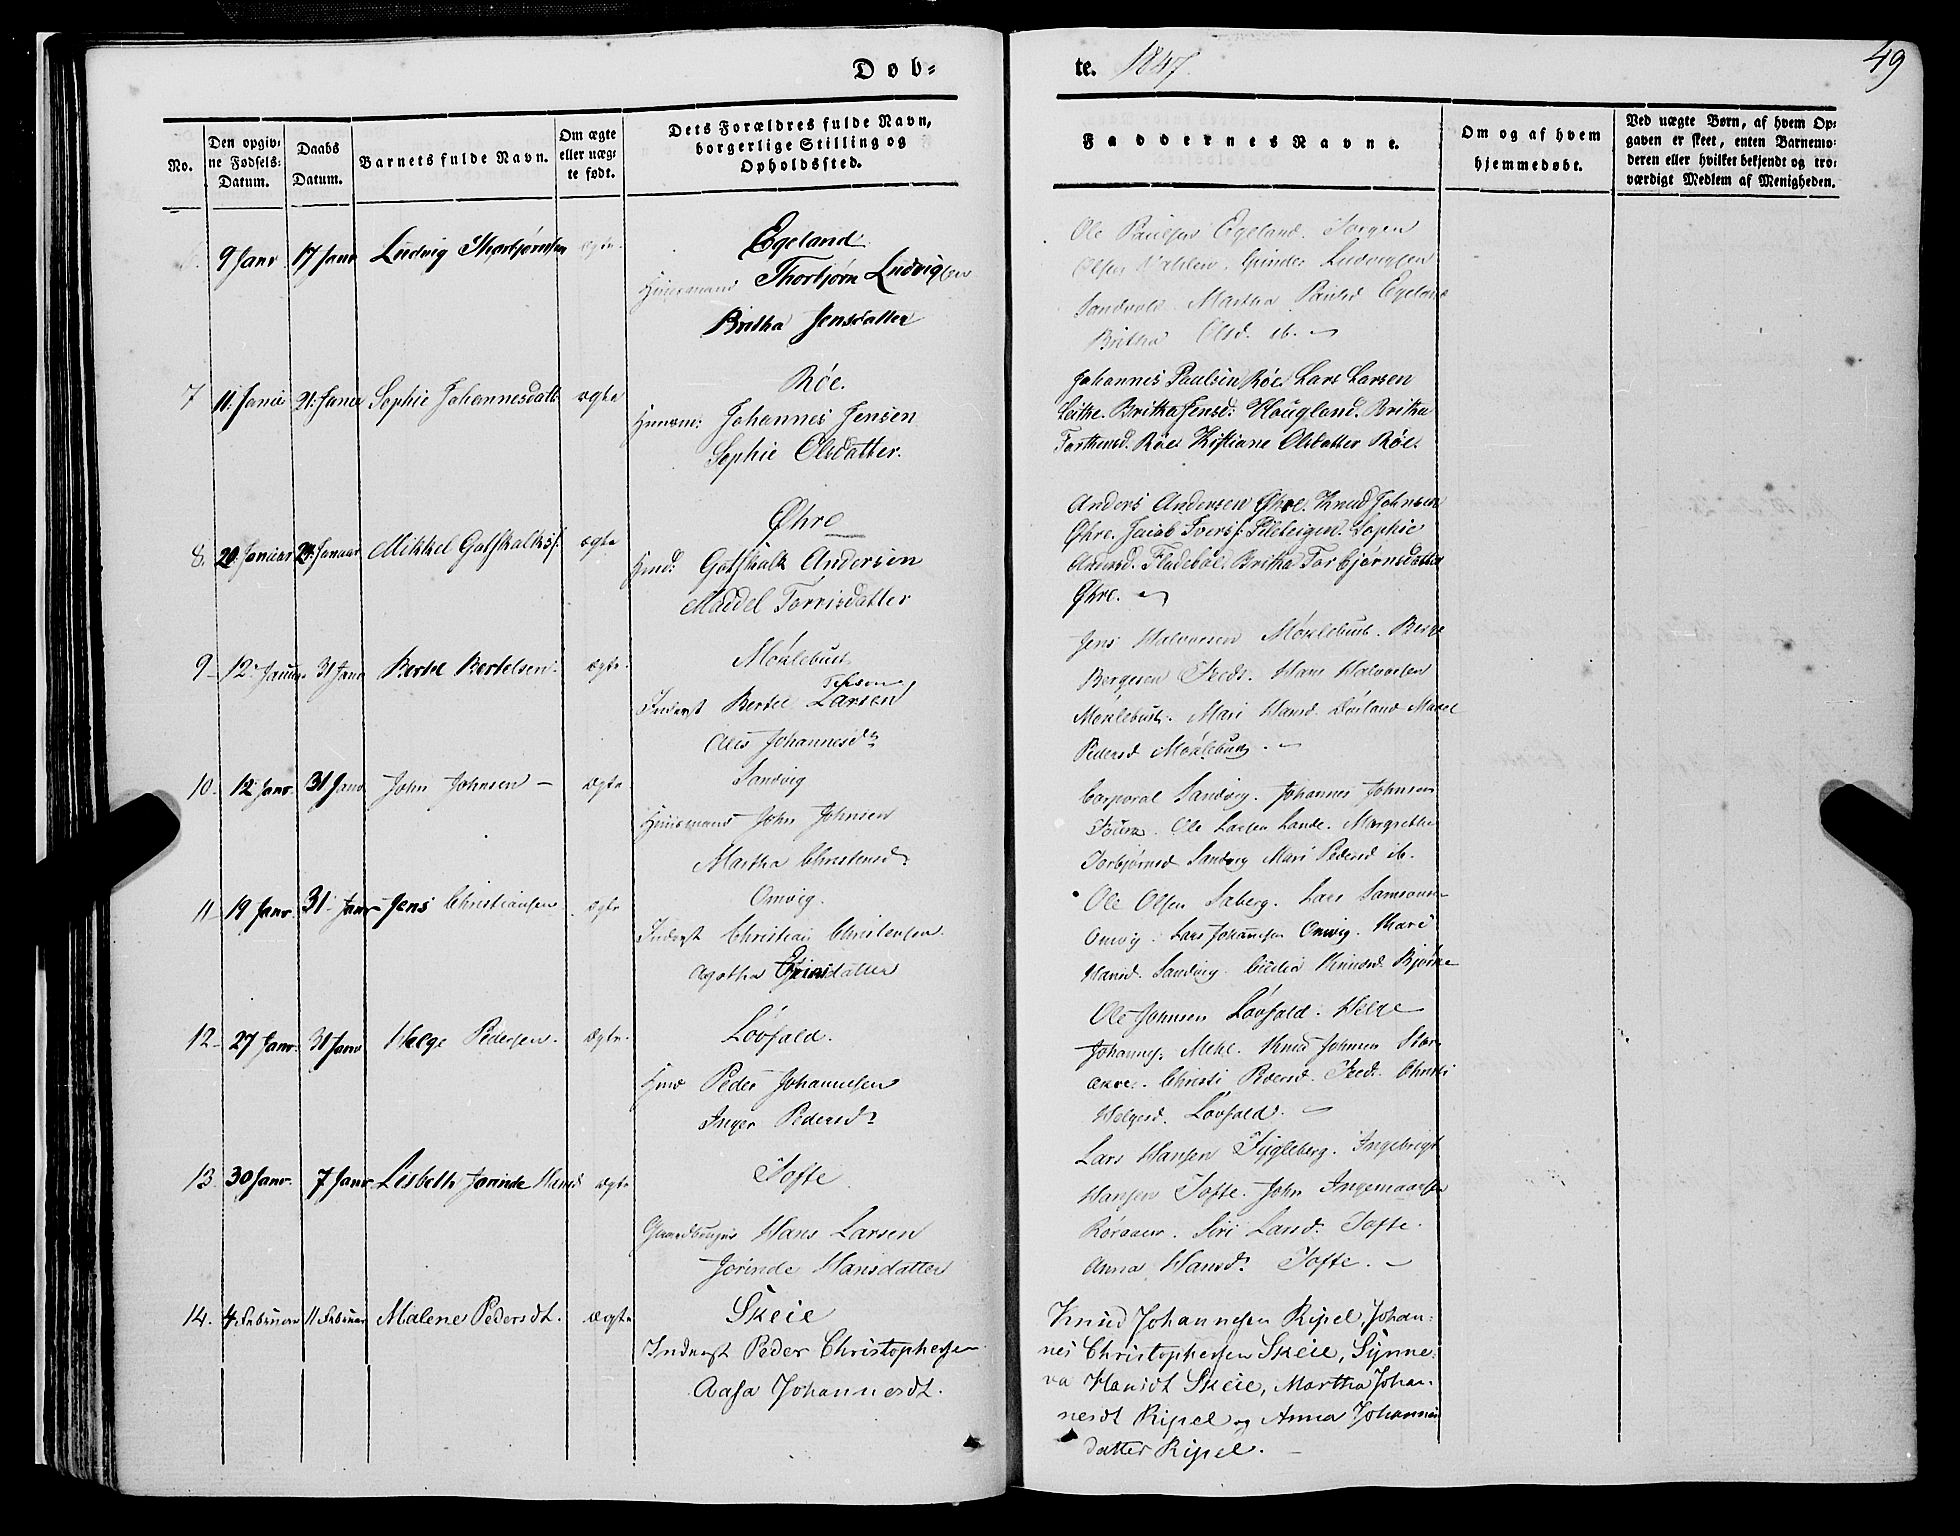 Døb-
te. 1847.
49
No.
Den opgiv-
ne Fødsels-
Datum.
Daabs
Datum.
Barnets fulde Navn.
Om ægte
eller uæg-
te født.
Dets Forældres fulde Navn,
borgerlige Stilling og
Opholdssted.
Faddernes Navne.
Om og af hvem
hjemmedøbt.
Ved uægte Børn, af hvem Op-
gaven er skeet, enten Barnemo-
deren eller hvilket bekjendt og tro-
værdigt Medlem af Menigheden.
9 Janr 17 Janr Ludvig Thorbjørnsen ægte.
Egeland
Huusmand Thorbjørn Ludvigsen
Britha Jensdatter
Ole Paulsen Egeland. Torgen
Olsen. Gunder Ludvigsen
Sandvold. Martha Paulsd Egeland
Britha Olsd. ib.
7 11. Januar 21. Januar Sophie Johannesdatt ægte
Røe.
Huusm: Johannes Jensen
Sophie Olsdatter.
Johannes Paulsen Røe. Lars Larsen
Britha Jensd: Hougland. Britha
Røe. Kistiane Olsdatter Røe.
8. 20. Januar 24. Januar Mikkel Gotskalksf. ægte
Øhre
Hmd: Gotskalk Andersen
Madel Torrisdatter
Anders Andersen Øhre. Knud Johnsen
Øhre. Jacob Ivers. Sophie
Andersd. Fladebøe. Britha Torbjørnsdatter
Øhre.
9 - 12. Januar. 31 Janr Bertel Bertelsen. ægte.
Møklebust
Inderst Bertel Larsen
Ales Johannesdr
Jens Halvorsen Møklebust. Berge
Bergesen Hans Halvorsen
Møklebust. Mari Hansd. Madel
Pedersd Møklebust.
10. 12 Janr. 31 Janr John Johnsen - ægte
Sandvig
Huusmand John Johnsen
Martha Christensdr
Corporal Sandvig. Johannes Johnsen
Ole Larsen Lande. Margrethe
Torbjørnsd Sandvig Mari Pedersd ib.
11 - 19 Janr. 31. Janr Jens Christiansen ægte
Omvig.
Inderst Christian Christensen.
Agotha datter
Ole Olsen Saberg. Lars Samsonsen
Omvig. Lars Johannesen Omvig. Mari
Hansd. Sandvig. Knudsd. Bjørke
12 - 27 Janr. 31 Janr Helge Pedersen. ægte.
Løvfald.
Hmd Peder Johannesen
Inger Pedersdr
Ole Johnsen Løvfald. Helge
Johannes. Mehl. Knud Johnsen Stor-
øxre. Christi Pedersd. Christi
Helgesd. Løvfald.
13 30 Janr. 7 Janr Lisbeth Jorinde Hansd ægte
Tofte.
Gaardbruger Hans Larsen
Jorinde Hansdatter
Lars Hansen Tyggleberg. Ingebrigt
Hansen Tofte. John Ingemarsen
Siri Larsd. Tofte.
Anna Hansdr Tofte.
14. 4 Februar 11 Februar Malene Pedersdt. ægte
Skeie
Inderst Peder Christophersen
Aasa Johannesdt.
Knud Johannesen Ripel, Johan-
nes Christophersen Skeie, Synne-
va Hansdt Skeie, Martha Johan-
nesdt Ripel og Anna Johannes
datter Ripel.